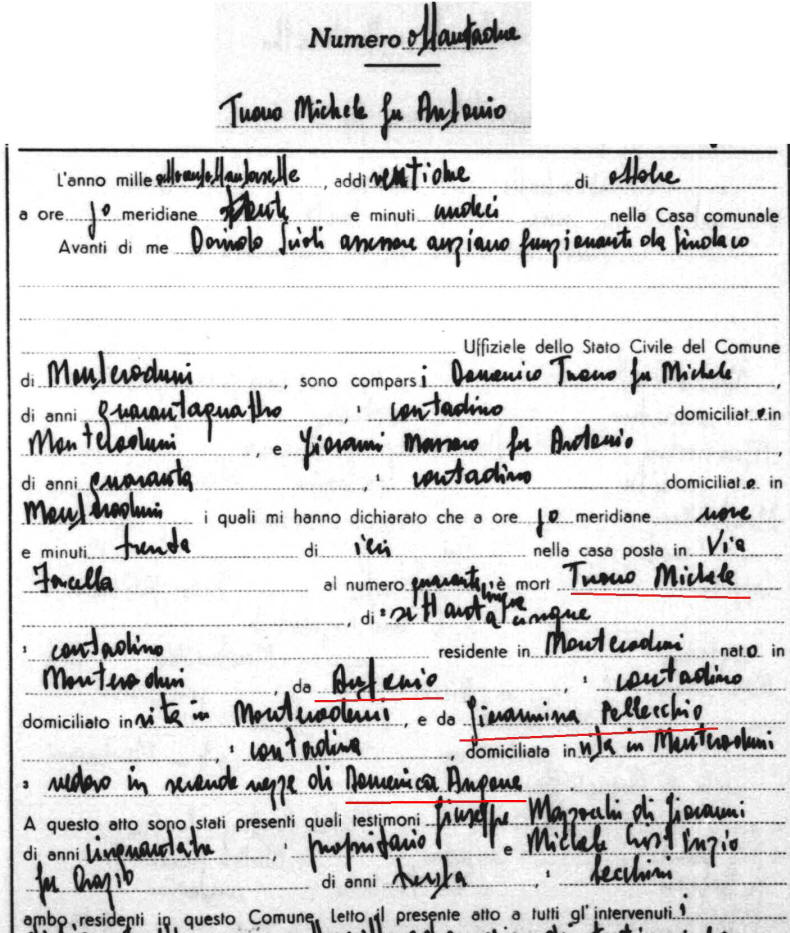 Numero ottantadue
Tuono Michele fu Antonio
L'anno mille ottocentottantasette, addì ventidue di ottobre
a ore po meridiane e minuti undici nella Casa comunale
Avanti di me assessore anziano funzionante da sindaco
Uffiziale dello Stato Civile del Comune
di Monteroduni, sono comparsi Domenico Tuono fu Michele,
di anni quarantaquattro, contadino domiciliato in
Monteroduni, e Giovanni fu Antonio
di anni quaranta, contadino domiciliato in
Monteroduni i quali mi hanno dichiarato che a ore po meridiane nove
e minuti trenta di ieri nella casa posta in Via
Forcella al numero è mort Tuono Michele
, di settantacinque
contadino residente in Monteroduni nato in
Monteroduni, da Antonio, contadino
domiciliato in vita in Monteroduni, e da Giovannina Pellecchio
, contadina, domiciliata in vita in Monteroduni
vedovo in seconde nozze di Domenica
A questo atto sono stati presenti quali testimoni Giuseppe di Giovanni
di anni, proprietario e Michele
fu Orazio di anni trenta,
ambo residenti in questo Comune. Letto il presente atto a tutti gl'intervenuti